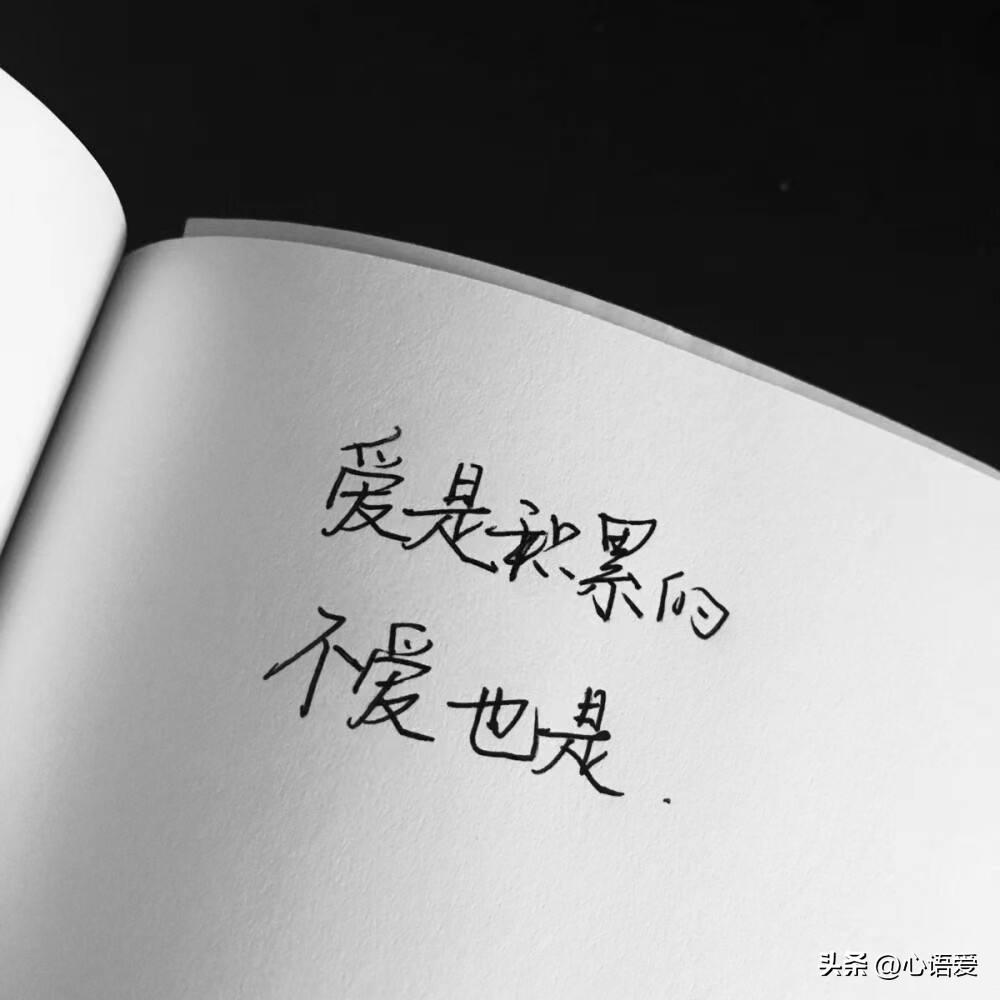 爱是积累的
不爱也是.
头条 @心语爱